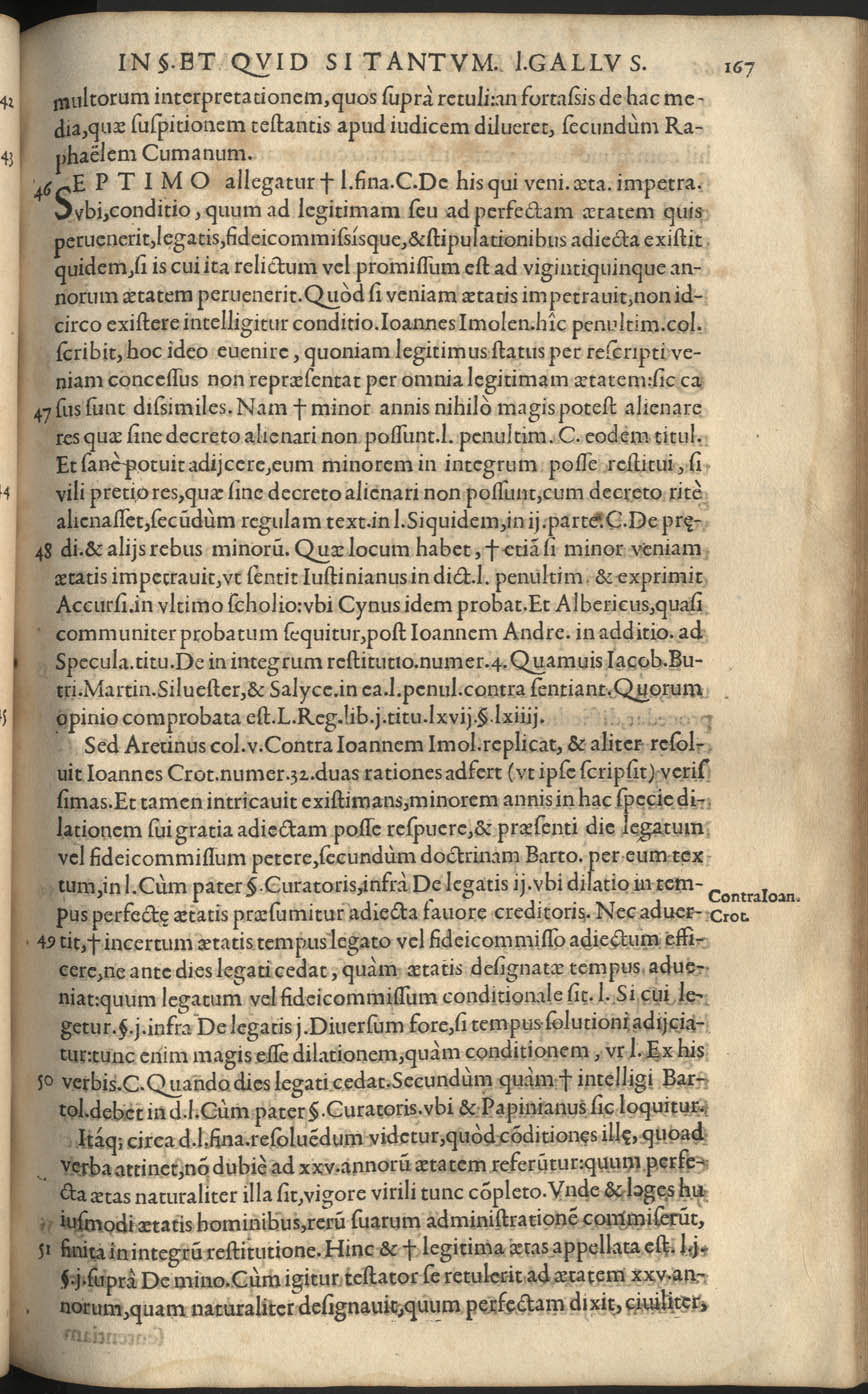 IN §. ET QVID SI TANTVM. l. GALLVS. 167
multorum interpretationem,quos suprà retuli:an fortassis de hac me-
dia,quæ suspitionem testantis apud iudicem dilueret, secundùm Ra-
phaëlem Cumanum.
46 SEPTIMO allegatur † l.fina.C.De his qui veni.æta. impetra.
Vbi,conditio, quum ad legitimam seu ad perfectam ætatem quis
peruenerit,legatis,fideicommissísque,&stipulationibus adiecta existit
quidem,si is cui ita relictum vel promissum est ad vigintiquinque an-
norum ætatem peruenerit.Quòd si veniam ætatis impetrauit,non id-
circo existere intelligitur conditio.Ioannes Imolen.hîc penultim.col.
scribit, hoc ideo euenire, quoniam legitimus status per rescripti ve-
niam concessus non repræsentat per omnia legitimam ætatem:sic ca
47 sus sunt dissimiles. Nam † minor annis nihilò magis potest alienare
res quæ sine decreto alienari non possunt.l. penultim. C. eodem titul.
Et sanè potuit adijcere,eum minorem in integrum posse restitui, si
vili pretio res,quæ sine decreto alienari non possunt,cum decreto ritè
alienasset,secũdùm regulam text.in l.Siquidem,in ij.parte.C.De prę-
48 di.& alijs rebus minorũ. Quæ locum habet, † etiã si minor veniam
ætatis impetrauit,vt sentit Iustinianus in dict.l. penultim. & exprimit
Accursi.in vltimo scholio:vbi Cynus idem probat.Et Albericus,quasi
communiter probatum sequitur,post Ioannem Andre. in additio. ad
Specula.titu.De in integrum restitutio.numer.4.Quamuis Iacob.Bu-
tri.Martin.Siluester,& Salyce.in ea.l.penul.contra sentiant.Quorum
opinio comprobata est.L.Reg.lib.j.titu.lxvij.§.lxiiij.
Sed Aretinus col.v.Contra Ioannem Imol.replicat, & aliter resol-
uit Ioannes Crot.numer.32.duas rationes adfert (vt ipse scripsit) veris
simas.Et tamen intricauit existimans,minorem annis in hac specie di-
lationem sui gratia adiectam posse respuere,& præsenti die legatum
vel fideicommissum petere,secundùm doctrinam Barto. per eum tex
tum,in l.Cùm pater §.Curatoris,infrà De legatis ij.vbi dilatio in tem-
pus perfectę ætatis præsumitur adiecta fauore creditoris. Nec aduer-
ContraIoan.
Crot.
49 tit,† incertum ætatis tempus legato vel fideicommisso adiectum effi-
cere,ne ante dies legati cedat, quàm ætatis designatæ tempus adue-
niat:quum legatum vel fideicommissum conditionale sit. l. Si cui le-
getur.§.j.infra De legatis j.Diuersum fore,si tempus solutioni adijcia-
tur:tunc enim magis esse dilationem,quàm conditionem, vt l. Ex his
50 verbis.C.Quando dies legati cedat.Secundùm quàm † intelligi Bar-
tol.debet in d.l.Cùm pater §.Curatoris.vbi & Papinianus sic loquitur.
Itáq; circa d.l.fina.resoluẽdum videtur,quòd cõditiones illę, quoad
verba attinet,nõ dubiè ad xxv.annorũ ætatem referũtur:quum perfe-
cta ætas naturaliter illa sit,vigore virili tunc cõpleto.Vnde & leges hu
iusmodi ætatis hominibus,rerũ suarum administrationẽ commiserũt,
51 finita in integrũ restitutione. Hinc & † legitima ætas appellata est. l.j.
§.j.suprà De mino.Cùm igitur testator se retulerit ad ætatem xxv.an-
norum,quam naturaliter designauit,quum perfectam dixit, ciuiliter,
42
43